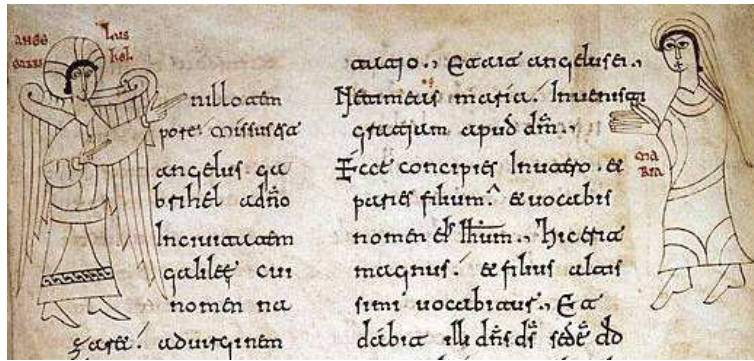 ange lus
gabri hel
n illo tem
pore: missus est
angelus ga
brihel a dno
In civitatem
galileę cui
nomen na
zaret: ad virginem
tatio., Et ait angelus ei.,
Ne timeas maria. Invenisti
gratiam apud dm.,
Ecce concipies In utero. et
paries filium. et vocabis
nomen eius Ihum., hic erit
magnus. et filius altis
simi vocabitur., Et
dabit illi dns ds sede dd
ma
ria